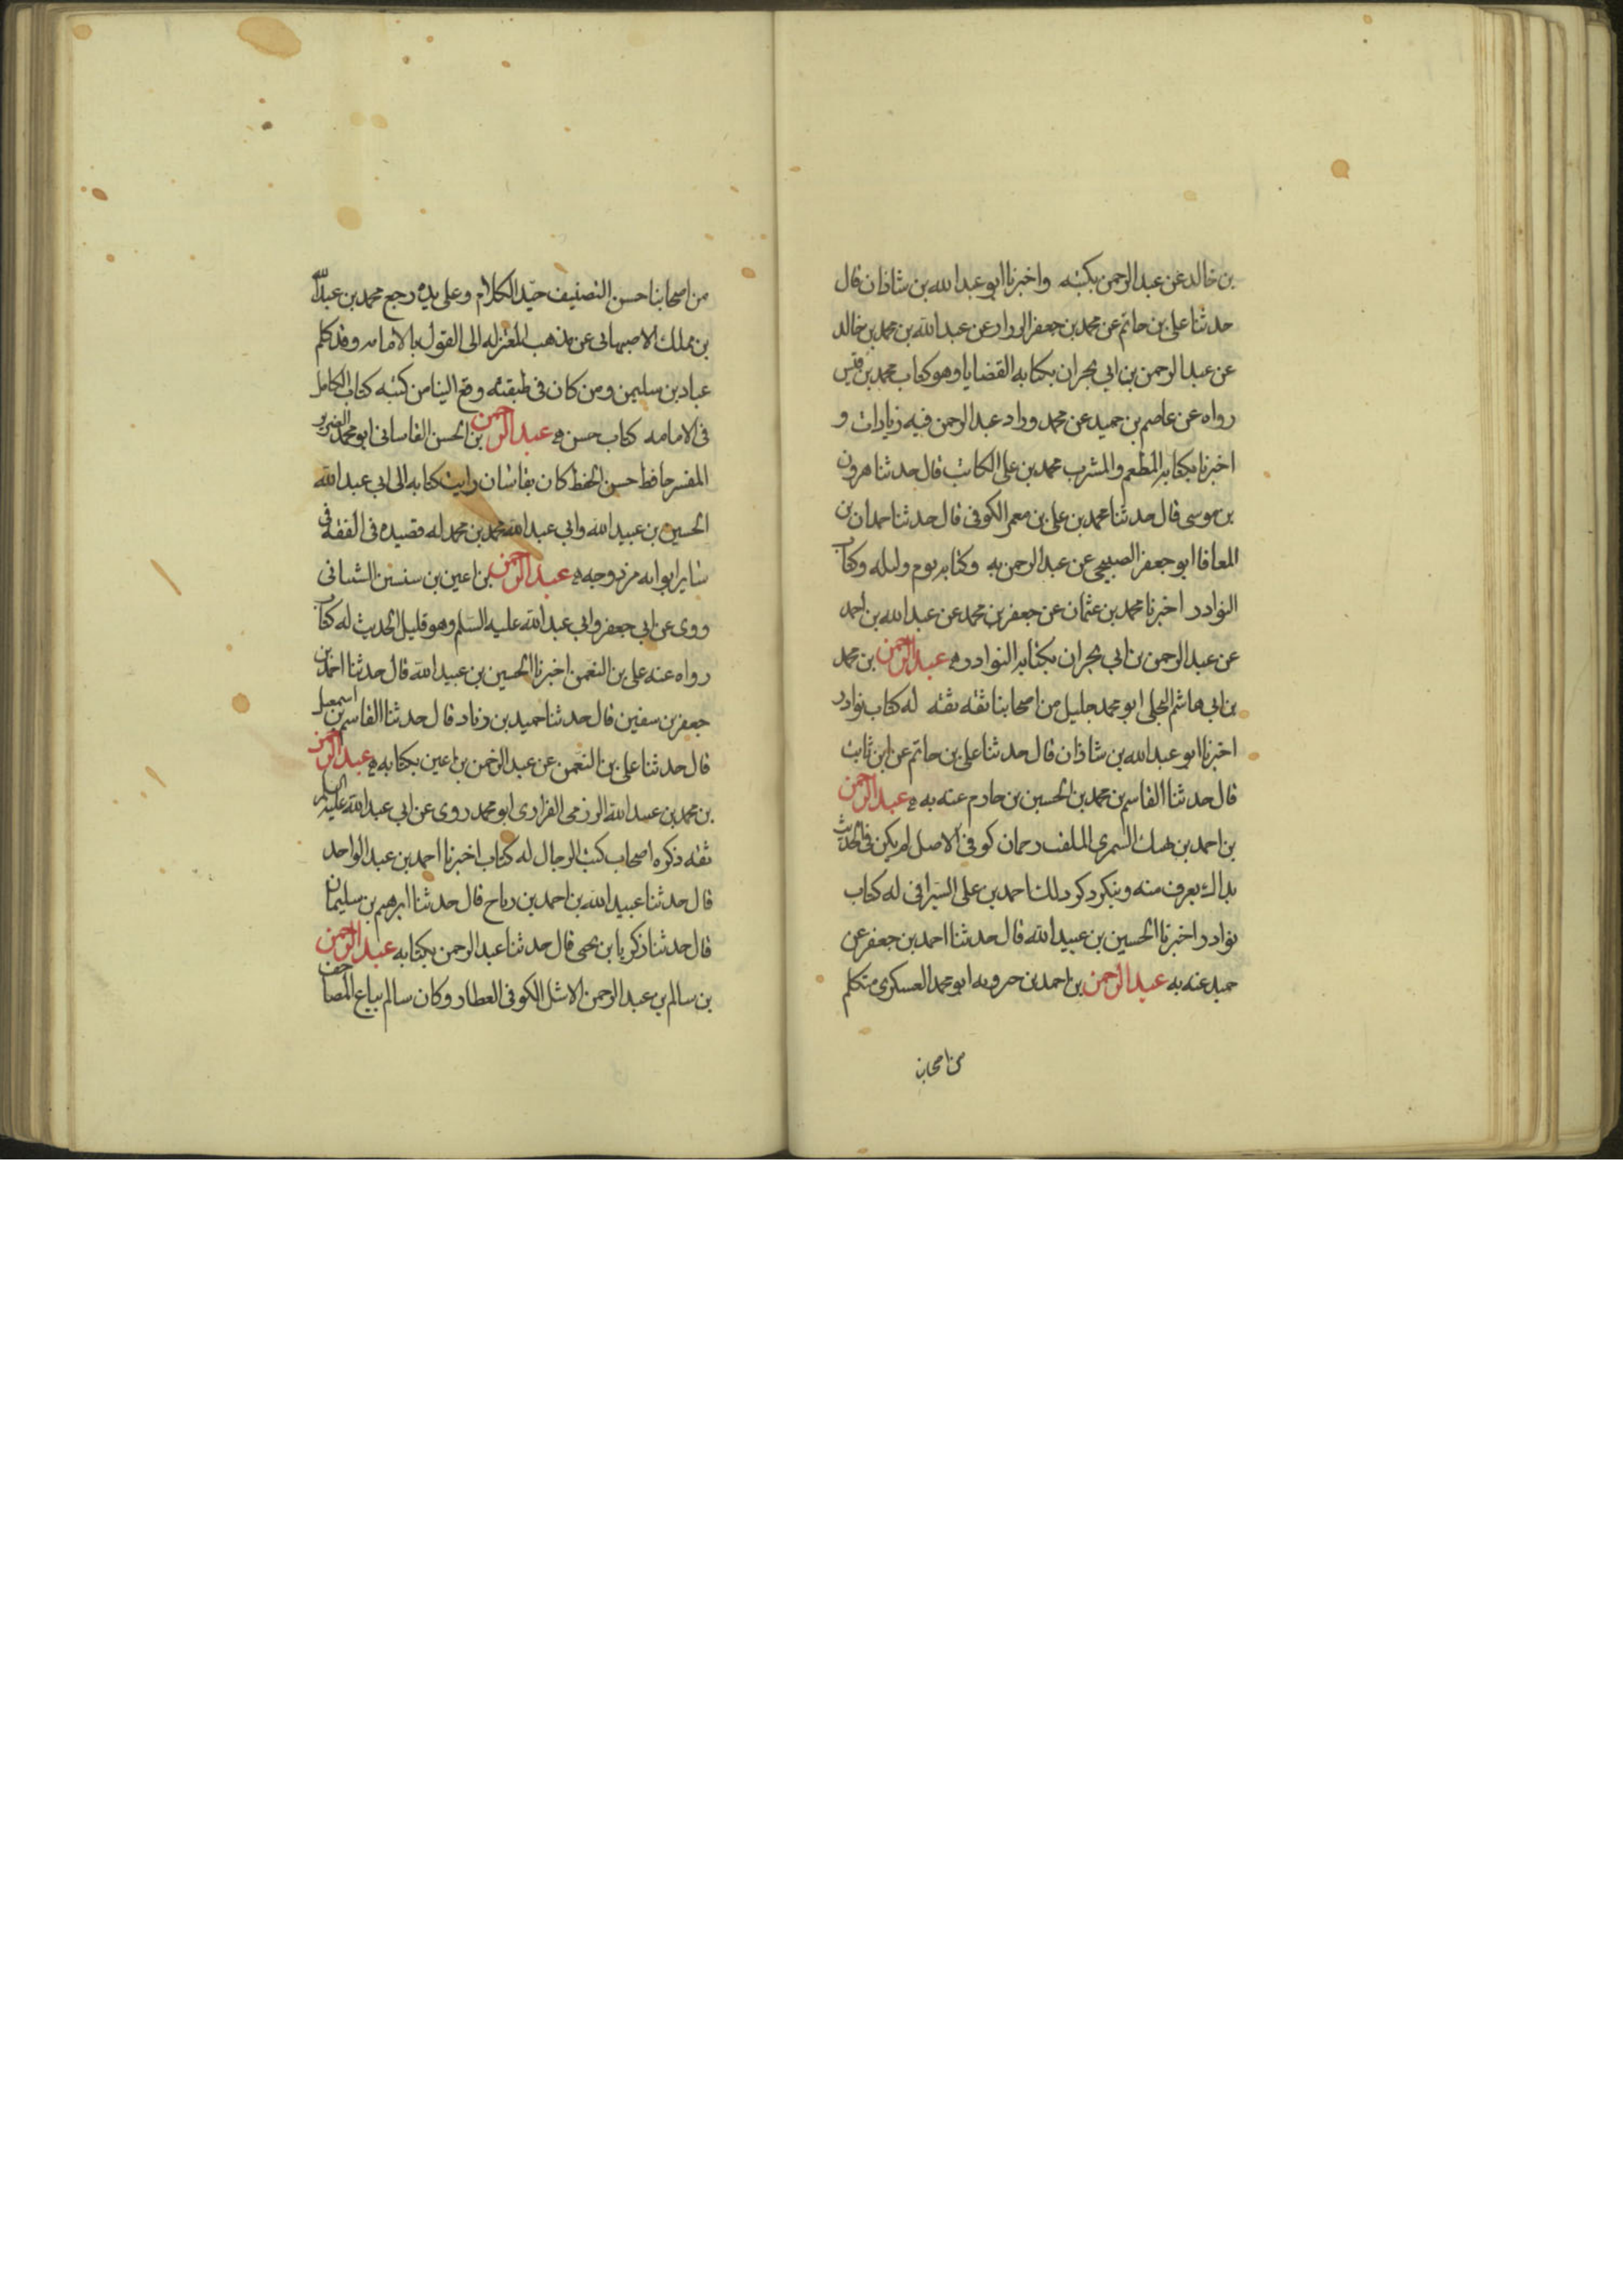 بن خالد عن عبد الرحمن بكتبه واخبرنا ابو عبد الله بن شاذان قال
حدثنا علي بن حاتم عن محمد بن جعفر الرزاز عن عبد الله بن محمد بن خالد
عن عبد الرحمن بن ابي نجران بكتابه القضايا وهو كتاب محمد بن قيس
رواه عن عاصم بن حميد عن محمد وزاد عبد الرحمن فيه زيادات و
اخبرنا بكتابه المطعم والمشرب محمد بن علي الكاتب قال حدثنا هرون
بن موسى قال حدثنا محمد بن علي بن معمر الكوفي قال حدثنا حمدان بن
المعافا ابو جعفر الصبيحي عن عبد الرحمن به وكتابه يوم وليله وكتاب
النوادر اخبرنا محمد بن عثمان عن جعفر بن محمد عن عبد الله بن احمد
عن عبد الرحمن بن ابي نجران بكتابه النوادر ه عبد الرحمن بن محمد
بن ابي هاشم البجلي ابو محمد جليل من اصحابنا ثقه ثقه له كتاب نوادر
اخبرنا ابو عبد الله بن شاذان قال حدثنا علي بن حاتم عن ابن ثابت
قال حدثنا القاسم بن محمد بن الحسين بن حازم عنه به ه عبد الرحمن
بن احمد بن نهيك السمري الملقب دحمان كوفي الاصل لم يكن في الحديث
بذاك يعرف منه وينكر ذكر ذلك احمد بن علي السيرافي له كتاب
نوادر اخبرنا الحسين بن عبيد الله قال حدثنا احمد بن جعفر عن
حميد عنه به عبد الرحمن بن احمد بن جبرويه ابو محمد العسكري متكلم
من اصحابنا
من اصحابنا حسن التصنيف جيد الكلام وعلى يده رجع محمد بن عبد الله
بن مملك الاصبهاني عن مذهب المعتزله الى القول بالامامه وقد كلم
عباد بن سليمن ومن كان في طبقته وقع الينا من كتبه كتاب الكامل
في الامامه كتاب حسن ه عبد الرحمن بن الحسن القاساني ابو محمد الضرير
المفسر حافظ حسن الحفظ كان بقاشان رايت كتابه الى ابي عبد الله
الحسين بن عبيد الله وابي عبد الله محمد بن محمد له قصيده في الفقه في
ساير ابوابه مزدوجه ه عبد الرحمن بن اعين بن سنسن الشيباني
روى عن ابي جعفر وابي عبد الله عليه السلم وهو قليل الحديث له كتاب
رواه عنه علي بن النعمن اخبرنا الحسين بن عبيد الله قال حدثنا احمد بن
جعفر بن سفين قال حدثنا حميد بن زياد قال حدثنا القاسم بن اسمعيل
قال حدثنا علي بن النعمن عن عبد الرحمن بن اعين بكتابه ه عبد الرحمن
بن محمد بن عبيد الله الرزمي الفزاري ابو محمد روى عن ابي عبد الله عليه السلم
ثقه ذكره اصحاب كتب الرجال له كتاب اخبرنا احمد بن عبد الواحد
قال حدثنا عبيد الله بن احمد بن رباح قال حدثنا ابرهيم بن سليمان
قال حدثنا زكريا بن يحيى قال حدثنا عبد الرحمن بكتابه عبد الرحمن
بن سالم بن عبد الرحمن الاشل الكوفي العطار وكان سالم بياع المصاحف